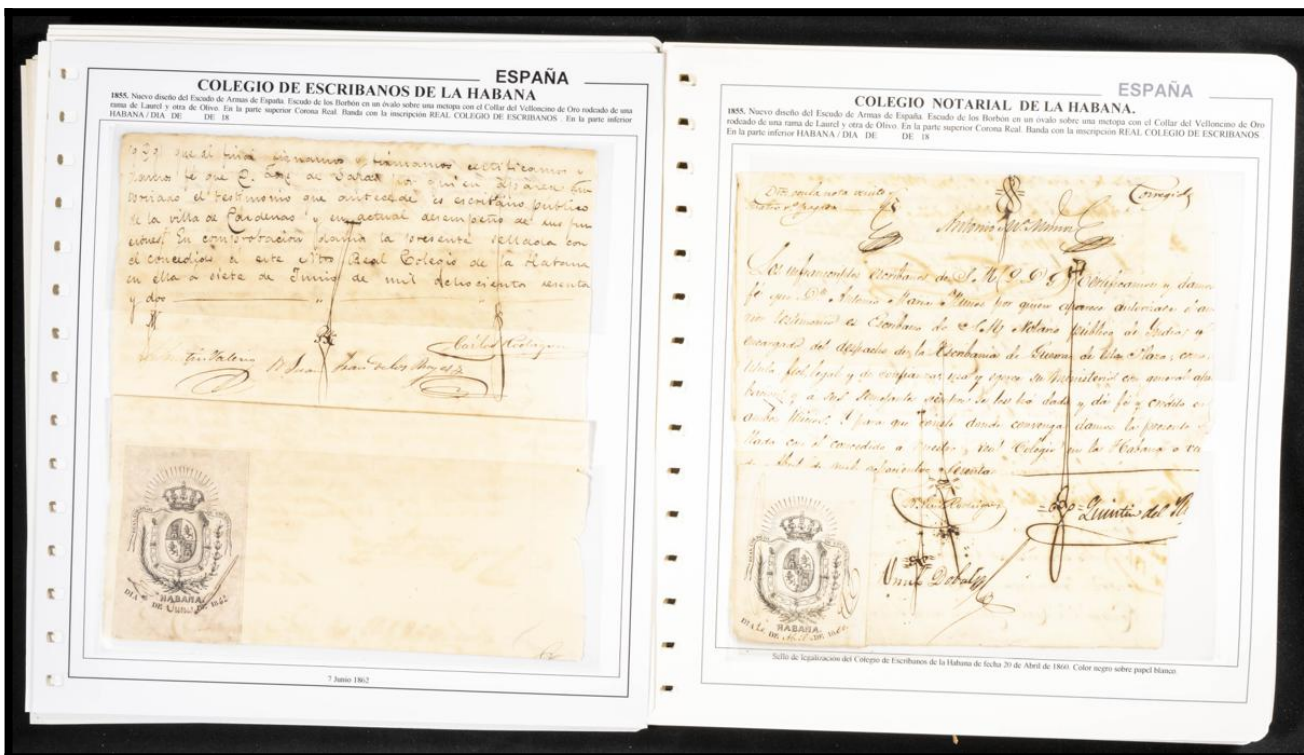 ESPAÑA
COLEGIO DE ESCRIBANOS DE LA HABANA
1855. Nuevo diseño del Escudo de Armas de España. Escudo de los Borbón en un óvalo sobre una metopa con el Collar del Velloncino de Oro rodeado de una
rama de Laurel y otra de Olivo. En la parte superior Corona Real. Banda con la inscripción REAL COLEGIO DE ESCRIBANOS . En la parte inferior
HABANA / DIA DE DE 18
que al final signamos y firmamos certificamos y
damos fe que D. José de por quien aparece
el testimonio que antecede es escribano público
de la villa de Cárdenas y en actual desempeño de sus fun
ciones. En comprobacion damos la presente sellada con
el concedido á este Ntro Real Colegio de la Habana
en ella á siete de Junio de mil ochocientos sesenta
y dos
Valerio
Juan de los Reyes
Carlos
HABANA.
DIA DE Junio DE 1862
7 Junio 1862
ESPAÑA
COLEGIO NOTARIAL DE LA HABANA.
1855. Nuevo diseño del Escudo de Armas de España. Escudo de los Borbón en un óvalo sobre una metopa con el Collar del Velloncino de Oro
rodeado de una rama de Laurel y otra de Olivo. En la parte superior Corona Real. Banda con la inscripción REAL COLEGIO DE ESCRIBANOS
En la parte inferior HABANA / DIA DE DE 18
Antonio Mª
Los infrascriptos escribanos de S. M. (Q. D. G.) Certificamos y damos
fé que Dn. Antonio Maria por quien aparece autorizado el an
testimonio es Escribano de S. M. Notario público de Indias y
encargado del despacho de la Escribanía de Guerra de esta Plaza, como
fiel, legal y de confianza usa y ejerce su Ministerio con general
y a sus semejantes siempre se les ha dado y dá fé y crédito en
ambos Y para que conste donde convenga damos la presente
llada con el concedido a nuestro real Colegio en la Habana a
de Abril de mil ochocientos sesenta
Quintin del
HABANA.
DIA DE Abril DE 1860
Sello de legalización del Colegio de Escribanos de la Habana de fecha 20 de Abril de 1860. Color negro sobre papel blanco.